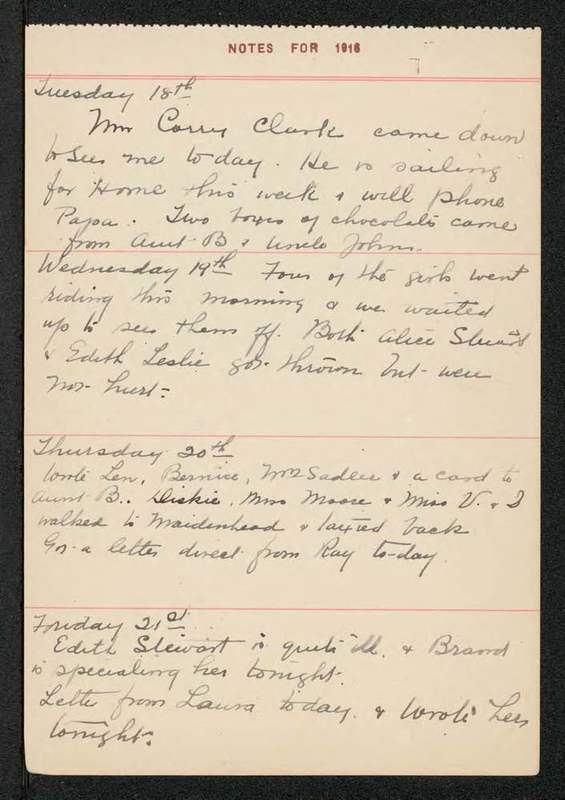 NOTES FOR 1916
Tuesday 18th
Mr Corry Clark came down
to see me to-day. He is sailing
for Home this week & will phone
Papa. Two boxes of chocolats came
from Aunt B & Uncle Johns.
Wednesday 19th Four of the girls went
riding this morning & we waited
up to see them off. Both Alice Stuart
& Edith Leslie got thrown but were
not hurt.
Thursday 20th
Wrote Len, Bernice, Mrs Sadler & a card to
Aunt B.. Diskie, Miss Moore & Miss V. & I
walked to Maidenhead & taxied back
Got a letter direct from Ray to-day
Friday 21st
Edith Stewart is quite ill & Brand
is specialing her tonight.
Letter from Laura today. & wrote her
tonight.